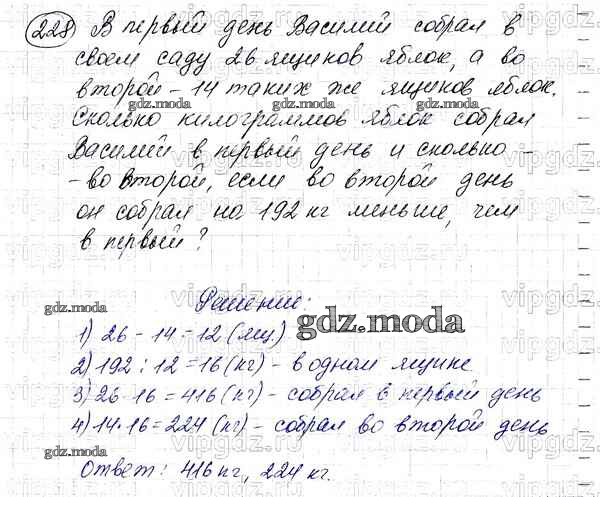 228 В первый день Василий собрал в
своем саду 26 ящиков яблок, а во
второй – 14 таких же ящиков яблок.
Сколько килограммов яблок собрал
Василий в первый день и сколько -
- во второй, если во второй день
он собрал на 192 кг меньше, чем
в первый?
Решение:
1) 26 - 14 = 12 (ящ.)
2) 192 : 12 = 16 (кг) - в одном ящике
3) 26 · 16 = 416 (кг) - собрал в первый день
4) 14 · 16 = 224 (кг) - собрал во второй день
Ответ: 416 кг, 224 кг.
gdz.moda
vipgdz.ru